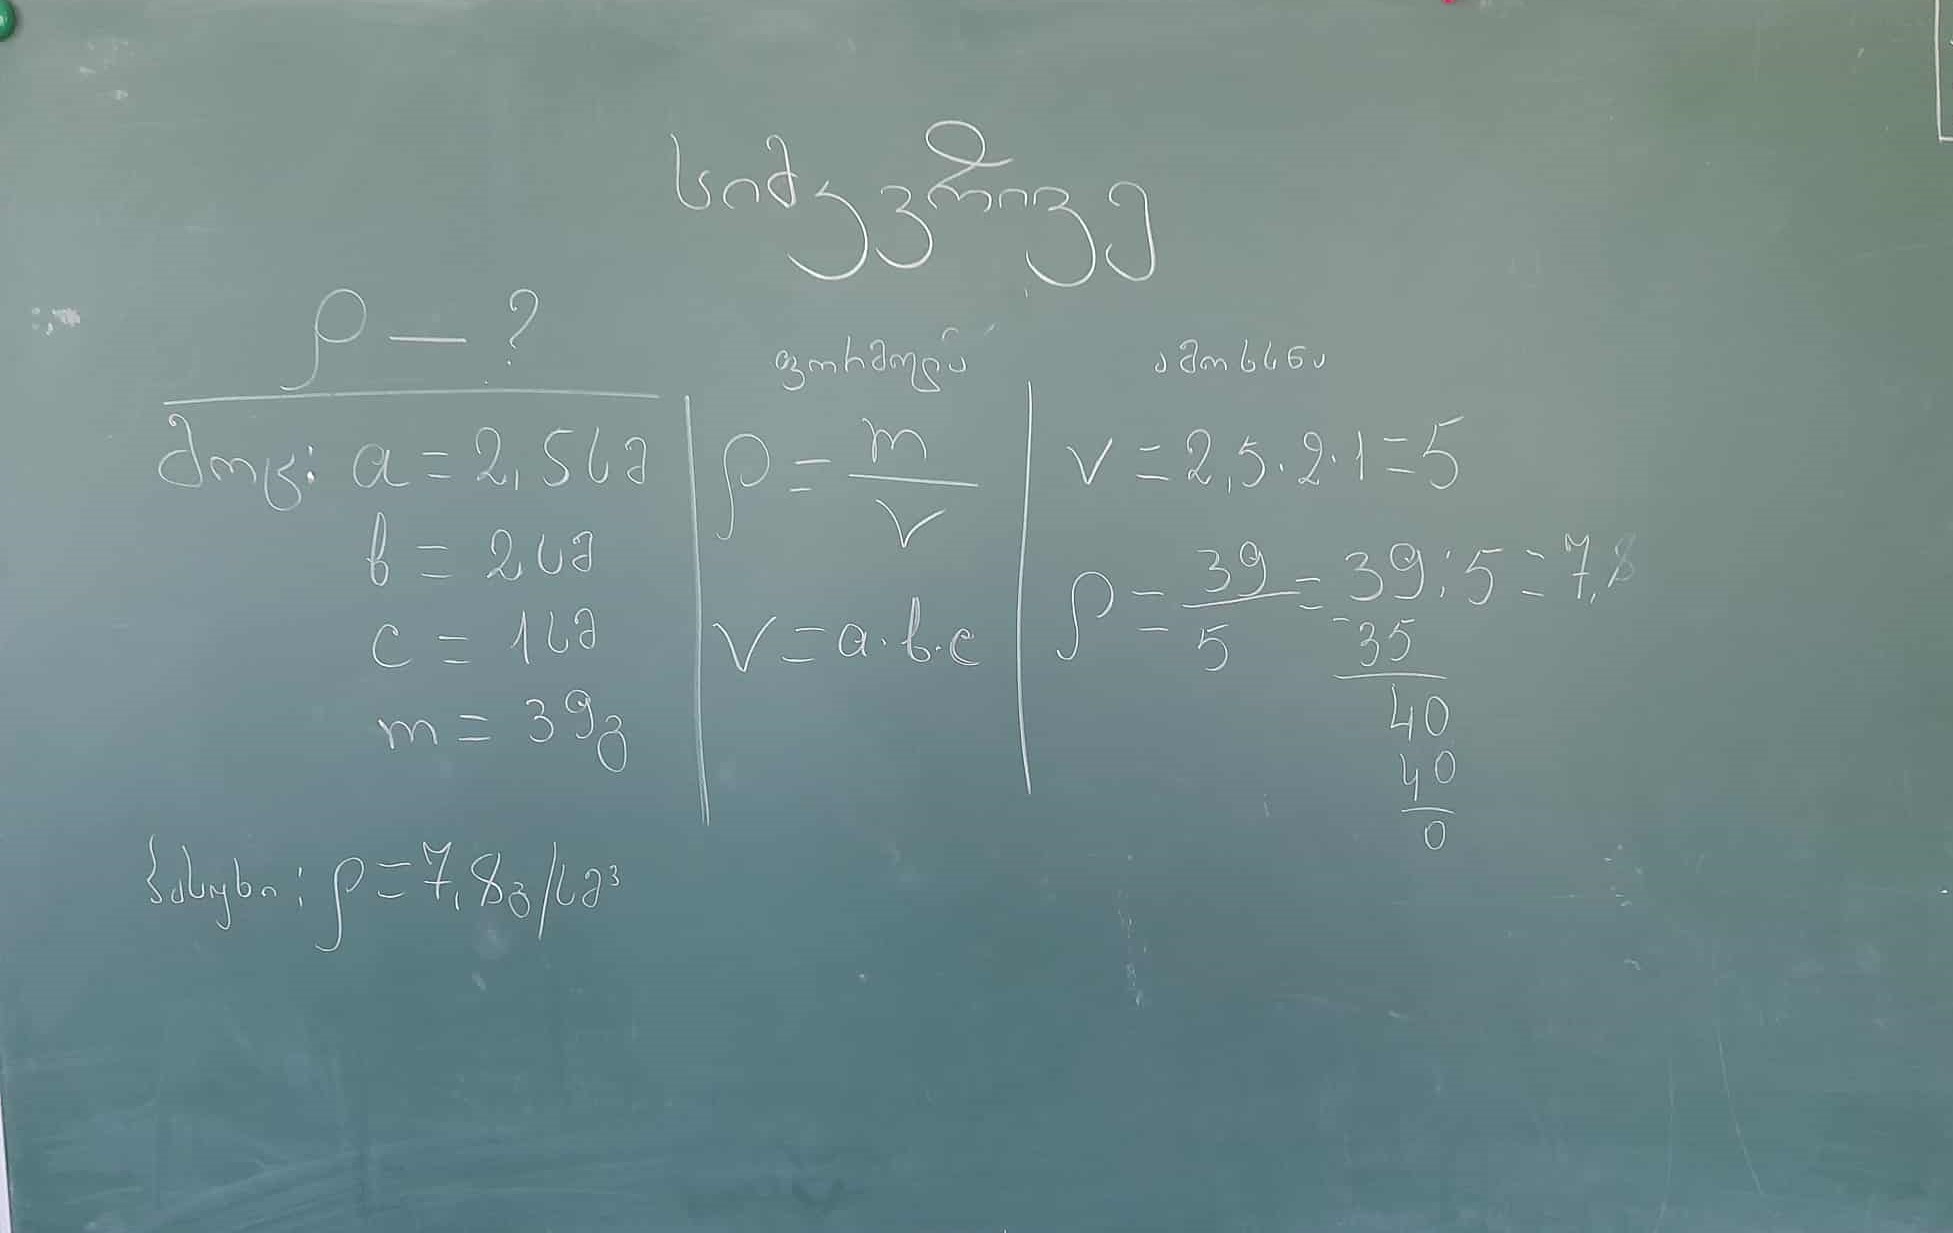 სიმკვრივე
ρ — ?
მოც: a = 2,5სმ
b = 2სმ
c = 1სმ
m = 39გ
ფორმულა
ρ = m/V
V = a·b·c
ამოხსნა
V = 2,5·2·1=5
ρ = 39/5 = 39:5=7,8
-35
40
40
0
პასუხი: ρ=7,8გ/სმ³